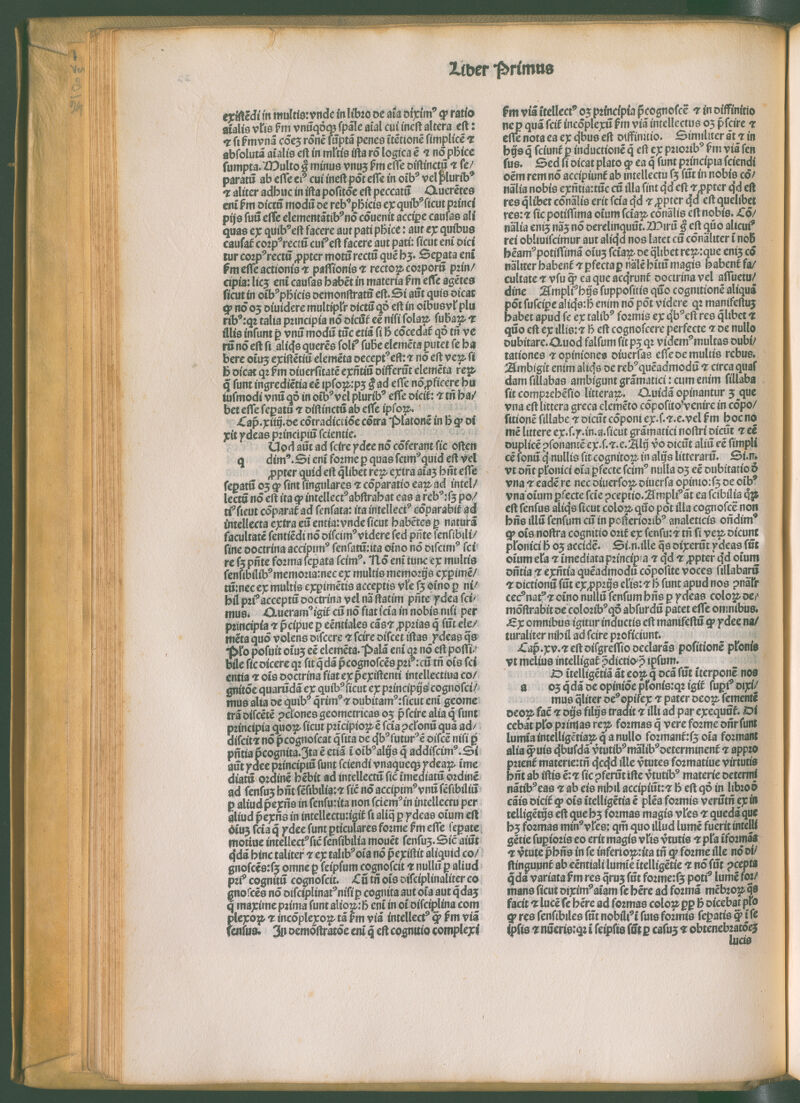 Liber Primus
existẽdi in multis: vnde in libro de aĩa diximꝰ ꝙ ratio
aĩalis vl̃is ẜm vnũqõꝙ spãle aĩal cui inest altera est:
⁊ si ẜm vnã cõeʒ rõnẽ sũpta penes ĩtẽtionẽ simplicẽ ⁊
absoluta aĩalis est in ml̃tis ista rõ logica ẽ ⁊ nõ phice
sumpta. Multo g̃ minus vnuʒ ẜm esse distinctũ ⁊ se/
paratũ ab esse eiꝰ cui inest põt esse in oĩbꝰ vel pluribꝰ
⁊ aliter adhuc in ista positõe est peccatũ Querẽtes
eni ẜm dictũ modũ de rebꝰ phicis ex quibꝰ sicut princi
pijs suũ esse elementãtibꝰ nõ cõuenit accipe causas ali
quas ex quibꝰ est facere aut pati phice: aut ex quibus
causat̃ corpꝰ rectũ cuiꝰ est facere aut pati: sicut eni dici
tur corpꝰ rectũ ꝓpter motũ rectũ quẽ hʒ. Sepata eni
ẜm esse actionis ⁊ passionis ⁊ rectoꝝ corporũ prin/
cipia: licʒ eni causas habẽt in materia ẜm esse agẽtes
sicut in oĩbꝰ phicis demonstratũ est. Si aũt quis dicat
ꝙ nõ os diuidere multiplr̃ dictũ qõ est in oĩbus vl̃ plu
ribꝰ: qꝛ talia principia nõ dicũt eẽ nisi solaꝝ subaꝝ ⁊
illis insunt ꝑ vnũ modũ tũc etiã si ħ cõcedat̃ qõ tñ ve
rũ nõ est si aliq̃s querẽs solꝰ sube elemẽta putet se ha
bere oĩuʒ existẽtiũ elemẽta deceptꝰ est: ⁊ nõ est veꝝ si
ħ dicat qꝛ ẜm diuersitatẽ exñtiũ differũt elemẽta reꝝ
q̃ sunt ingrediẽtia eẽ ipsoꝝ: pʒ g̃ ad esse nõ ꝓficere hu
iusmodi vnũ qõ in oĩbꝰ vel pluribꝰ esse dicit̃: ⁊ tñ ha/
bet esse sepatũ ⁊ distinctũ ab esse ipsoꝝ.
Cap. xiiij. de cõtradictiõe cõtra Platonẽ in ħ ꝙ di
xit ydeas principiũ scientie.
Uod aũt ad scire ydee nõ cõferant sic osten
q dimꝰ. Si eni forme ꝑ quas scimꝰ quid est vel
ꝓpter quid est q̃libet reꝝ extra aĩaʒ hñt esse
sepatũ os ꝙ sint singulares ⁊ cõparatio eaꝝ ad intel/
lectũ nõ est ita ꝙ intellectꝰ abstrahat eas a rebꝰ: sʒ po/
tiꝰ sicut cõparat̃ ad sensata: ita intellectꝰ cõparabit̃ ad
intellecta extra eũ entia: vnde sicut habẽtes ꝑ naturã
facultatẽ sentiẽdi nõ discimꝰ videre sed pñte sensibili/
sine doctrina accipimꝰ sensatũ: ita oĩno nõ discimꝰ sci
re sʒ pñte forma sepata scimꝰ. Nõ eni tunc ex multis
sensibilibꝰ memoria: nec ex multis memorijs expimẽ/
tũ: nec ex multis expimẽtis acceptis vl̃e sʒ oĩno ꝑ ni/
hil priꝰ acceptũ doctrina vel nã statim pñte ydea sci/
mus. Queramꝰ igit̃ cũ nõ fiat scia in nobis nisi per
principia ⁊ p̃cipue ꝑ eẽntiales cãs ⁊ ꝓprias q̃ sũt ele/
mẽta quõ volens discere ⁊ scire discet istas ydeas q̃s
Plo posuit oĩuʒ eẽ elemẽta. Palã eni qꝛ nõ est possi/
bile sic dicere qꝛ sit qdã p̃cognoscẽs priꝰ: cũ tñ oĩs sci
entia ⁊ oĩs doctrina fiat ex p̃existenti intellectiua co/
gnitõe quarũdã ex quibꝰ sicut ex principijs cognosci/
mus alia de quibꝰ q̃rimꝰ ⁊ dubitamꝰ: sicut eni geome
trã discẽtẽ ↄclones geometricas os p̃scire alia q̃ sunt
principia quoꝝ sicut principioꝝ ẽ scia ↄclonũ quã ad/
discit ⁊ nõ p̃cognoscat q̃sita de qbꝰ futurꝰ ẽ disce nisi ꝑ
pñtia p̃cognita. Ita ẽ etiã ĩ oĩbꝰ alijs q̃ addiscimꝰ. Si
aũt ydee principiũ sunt sciendi vnaqueqʒ ydeaꝝ ĩme
diatũ ordinẽ hẽbit ad intellectũ sic ĩmediatũ ordinẽ
ad sensuʒ hñt sẽsibilia: ⁊ sic nõ accipimꝰ vnũ sẽsibiliũ
ꝑ aliud p̃exñs in sensu: ita non sciemꝰ in intellectu per
aliud p̃exñs in intellectu: igit̃ si aliq̃ ꝑ ydeas oĩum est
oĩuʒ scia q̃ ydee sunt pticulares forme ẜm esse sepate
motiue intellectꝰ sic sensibilia mouẽt sensuʒ. Sic aiũt
qdã hinc taliter ⁊ ex talibꝰ oĩa nõ p̃existit aliquid co/
gnoscẽs: sʒ omne ꝑ seipsum cognoscit ⁊ nullũ ꝑ aliud
priꝰ cognitũ cognoscit. Cũ tñ oĩs disciplinaliter co
gnoscẽs nõ disciplinatꝰ nisi ꝑ cognita aut oĩa aut qdaʒ
q̃ maxime prima sunt alioꝝ: ħ eni in oĩ disciplina com
plexoꝝ ⁊ incõplexoꝝ tã ẜm viã intellectꝰ ꝙ ẜm viã
sensus. In demõstratõe eni q̃ est cognitio complexi
ẜm viã ĩtellectꝰ os principia p̃cognoscẽ ⁊ in diffinitio
ne ꝑ quã scit̃ incõplexũ ẜm viã intellectus os p̃scire ⁊
esse nota ea ex qbus est diffinitio. Similiter ãt ⁊ in
hijs q̃ sciunt̃ ꝑ inductionẽ q̃ est ex prioribꝰ ẜm viã sen
sus. Sed si dicat plato ꝙ ea q̃ sunt principia sciendi
oẽm rem nõ accipiunt̃ ab intellectu sʒ sũt in nobis cõ/
nãlia nobis exñtia: tũc cũ illa sint qd est ⁊ ꝓpter qd est
res q̃libet cõnãlis erit scia qd ⁊ ꝓpter qd est quelibet
res: ⁊ sic potissima oĩum sciaꝝ cõnãlis est nobis. Cõ/
nãlia eniʒ nãʒ nõ derelinquũt. Mirũ g̃ est quõ alicuiꝰ
rei obliuiscimur aut aliqd nos latet cũ cõnãliter ĩ nob̃
hẽamꝰ potissimã oĩuʒ sciaꝝ de q̃libet reꝝ: que eniʒ cõ
nãliter habent̃ ⁊ pfecta ꝑ nãlẽ hitũ magis habent̃ fa/
cultate ⁊ vsu ꝙ ea que acqrunt̃ doctrina vel assuetu/
dine Ampliꝰ hijs suppositis quõ cognitionẽ aliquã
põt suscipe aliqs: ħ enim nõ põt videre qꝛ manifestuʒ
habet apud se ex talibꝰ formis ex qbꝰ est res q̃libet ⁊
quõ est ex illis: ⁊ ħ est cognoscere perfecte ⁊ de nullo
dubitare. Quod falsum sit pʒ qꝛ videmꝰ multas dubi/
tationes ⁊ opiniones diuersas esse de multis rebus.
Ambigit enim aliqs de rebꝰ quẽadmodũ ⁊ circa quas
dam sillabas ambigunt grãmatici: cum enim sillaba
sit compreh̃ẽsio litteraꝝ. Quidã opinantur ʒ que
vna est littera greca elemẽto cõposito venire in cõpo/
sitionẽ sillabe ⁊ dicũt cõponi ex. s. ⁊. e. vel ẜm hoc no
mẽ littere ex. s. y. in. a. sicut grãmatici nostri dicũt ⁊ eẽ
duplicẽ ↄsonantẽ ex. s. ⁊. e. Alij vo dicũt aliũ eẽ simpli
cẽ sonũ q̃ nullis sit cognitoꝝ in alijs litterarũ. Si. n.
vt dñt plonici oĩa pfecte scimꝰ nulla os eẽ dubitatio de
vna ⁊ eadẽ re nec diuersoꝝ diuersa opinio: sʒ de oĩbꝰ
vna oĩum pfecte scie ↄceptio. Ampliꝰ ãt ea scibilia qꝝ
est sensus aliqs sicut coloꝝ quõ põt illa cognoscẽ non
hñs illũ sensum cũ in posterioribꝰ analeticis oñdimꝰ
ꝙ oĩs nostra cognitio orit̃ ex sensu: ⁊ tñ si veꝝ dicunt
plonici ħ os accidẽ. Si. n. ille q̃s dixerũt ydeas sũt
oĩum ela ⁊ ĩmediata principia ⁊ qd ⁊ ꝓpter qd oĩum
dñtia ⁊ exñtia quẽadmodũ cõposite voces sillabarũ
⁊ dictionũ sũt ex ꝓprijs elis: ⁊ ħ sunt apud nos ↄnãlr̃
cecꝰ natꝰ ⁊ oĩno nullũ sensum hñs ꝑ ydeas coloꝝ de/
mõstrabit de coloribꝰ qõ absurdũ patet esse omnibus.
Ex omnibus igitur inductis est manifestũ ꝙ ydee na/
turaliter nihil ad scire proficiunt.
Cap. xv. ⁊ est disgressio declarãs positionẽ plonis
vt melius intelligat̃ ↄdictio ↄ ipsum.
D ĩtelligẽtiã ãt eoꝝ q̃ dcã sũt ĩterponẽ nos
a os qdã de opiniõe plonis: qꝛ igit̃ supiꝰ dixi/
mus qliter deꝰ opifex ⁊ pater deoꝝ sementẽ
deoꝝ facẽ ⁊ dijs filijs tradit ⁊ illi ad par exequũt̃. Di
cebat plo primas reꝝ formas q̃ vere forme dñr sunt
lumĩa intelligẽtiaꝝ q̃ a nullo formant̃: sʒ oĩa formant
alia q̃uis qbusdã ṽtutibꝰ mãlibꝰ determinent̃ ⁊ appro
prient̃ materie: tñ qcqd ille ṽtutes formatiue virtutis
hñt ab istis ẽ: ⁊ sic ↄferũt iste ṽtutibꝰ materie determi
nãtibꝰ eas ⁊ ab eis nihil accipiũt: ⁊ ħ est qõ in libro de
cãis dicit̃ ꝙ oĩs ĩtelligẽtia ẽ plẽa formis verũtñ ex in
telligẽtijs est que hʒ formas magis vl̃es ⁊ quedã que
hʒ formas minꝰ vl̃es: qm̃ quo illud lumẽ fuerit intelli
gẽtie supioris eo erit magis vl̃is ṽtutis ⁊ pl̃a ĩformãs
⁊ ṽtute phñs in se inferioꝝ: ita tñ ꝙ forme ille nõ di/
stinguunt̃ ab eẽntiali lumiẽ ĩtelligẽtie ⁊ nõ sũt ↄcepta
qdã variata ẜm res qruʒ sũt forme: sʒ potiꝰ lumẽ for/
mans sicut diximꝰ aĩam se hẽre ad formã mẽbroꝝ q̃s
facit ⁊ lucẽ se hẽre ad formas coloꝝ ꝓp ħ dicebat plo
ꝙ res sensibiles sũt nobiliꝰ ĩ suis formis sepatis ꝙ ĩ se
ipsis ⁊ nũeris: qꝛ ĩ seipsis sũt ꝑ casuʒ ⁊ obtenebratõeʒ
lucis